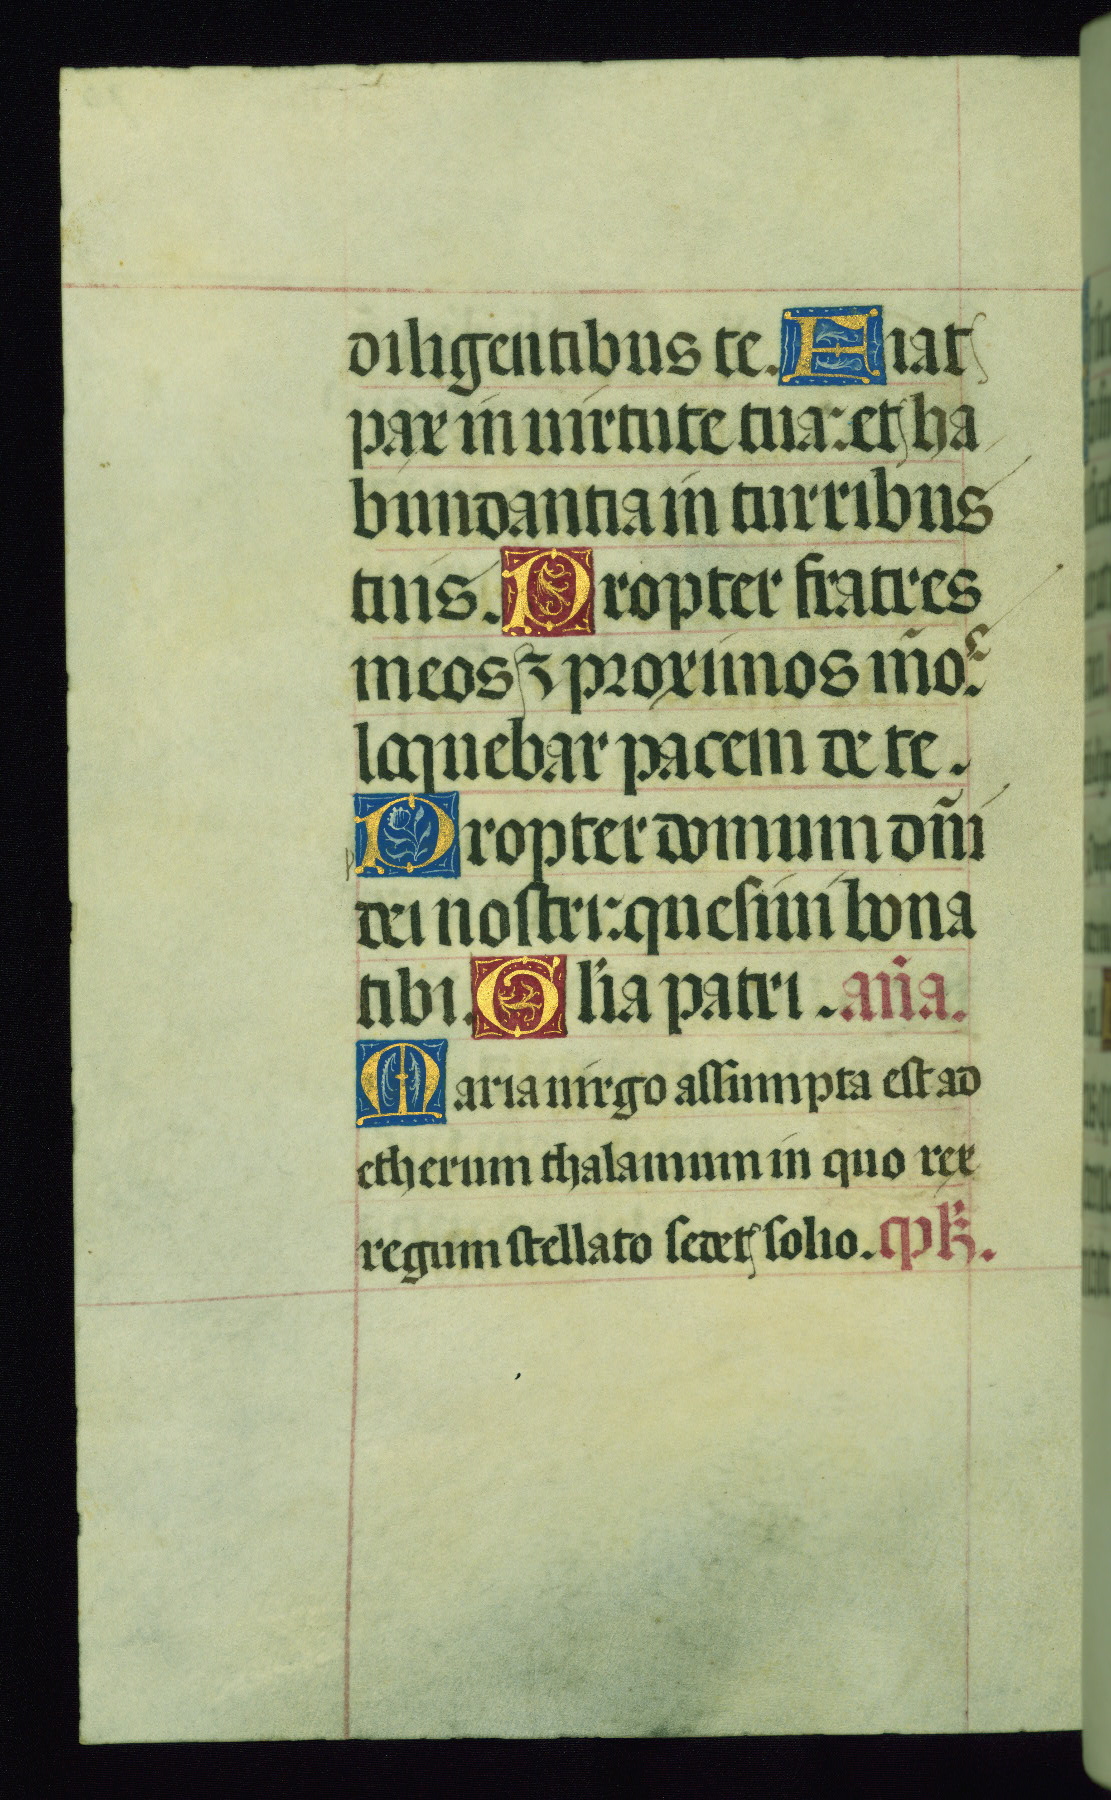 diligentibus te. Fiat
pax in uirtute tua: et ha
bundantia in turribus
tuis. Propter fratres
meos ⁊ proximos meos:
loquebar pacem de te.
Propter domum dñi
dei nostri: quesiui bona
tibi. Gl'ia patri. añа.
Maria uirgo assumpta est ad
etherum thalamum in quo rex
regum stellato sedet solio.